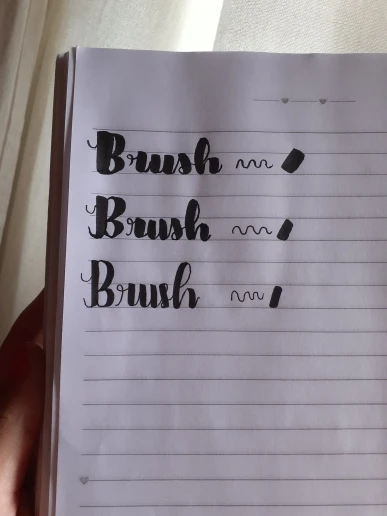 Brush
Brush
Brush